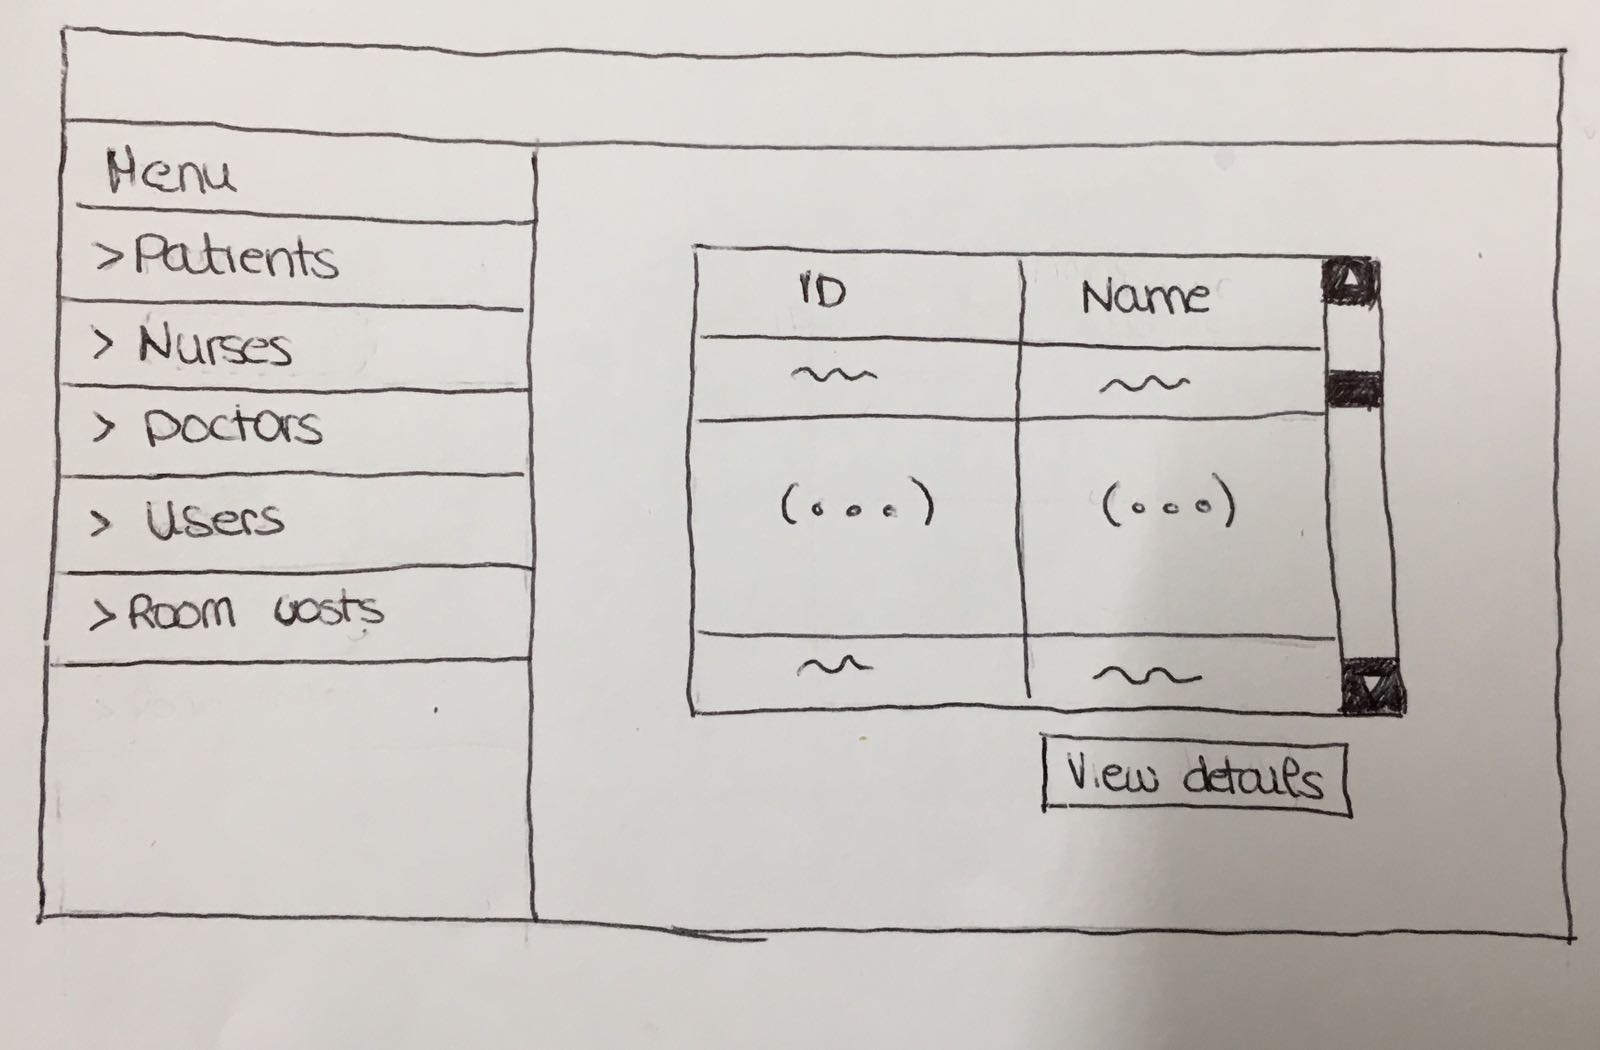 Menu
> Patients
> Nurses
> Doctors
> Users
> Room costs
ID Name
(...) (...)
View details